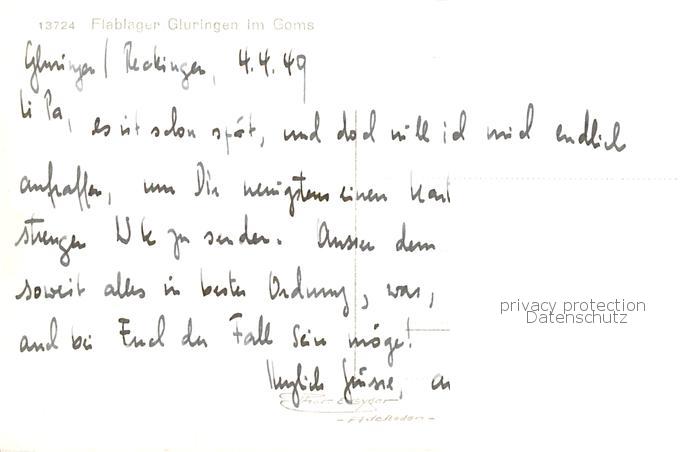 13724 Flablager Gluringen im Goms
Gluringen / Reckingen, 4.4.49
Li Pa,
es ist schon spät, und doch will ich mich endlich
aufraffen, um Dir wenigstens einen Kart
strengen WK zu senden. Ausser dem
soweit alles in bester Ordnung, was,
auch bei Euch der Fall sein möge!
Herzlich Grüsse, an
privacy protection
Datenschutz
Adelboden